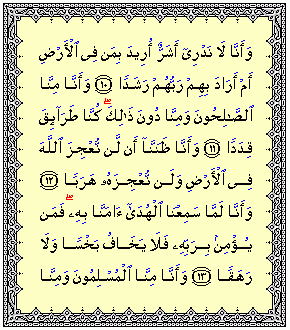 وَأَنَّا لَا نَدْرِىٓ أَشَرٌّ أُرِيدَ بِمَن فِى ٱلْأَرْضِ
أَمْ أَرَادَ بِهِمْ رَبُّهُمْ رَشَدًا ۝١٠ وَأَنَّا مِنَّا
ٱلصَّـٰلِحُونَ وَمِنَّا دُونَ ذَٰلِكَ ۖ كُنَّا طَرَآئِقَ
قِدَدًا ۝١١ وَأَنَّا ظَنَنَّآ أَن لَّن نُّعْجِزَ ٱللَّهَ
فِى ٱلْأَرْضِ وَلَن نُّعْجِزَهُۥ هَرَبًا ۝١٢
وَأَنَّا لَمَّا سَمِعْنَا ٱلْهُدَىٰٓ ءَامَنَّا بِهِۦ ۖ فَمَن
يُؤْمِنۢ بِرَبِّهِۦ فَلَا يَخَافُ بَخْسًا وَلَا
رَهَقًا ۝١٣ وَأَنَّا مِنَّا ٱلْمُسْلِمُونَ وَمِنَّا